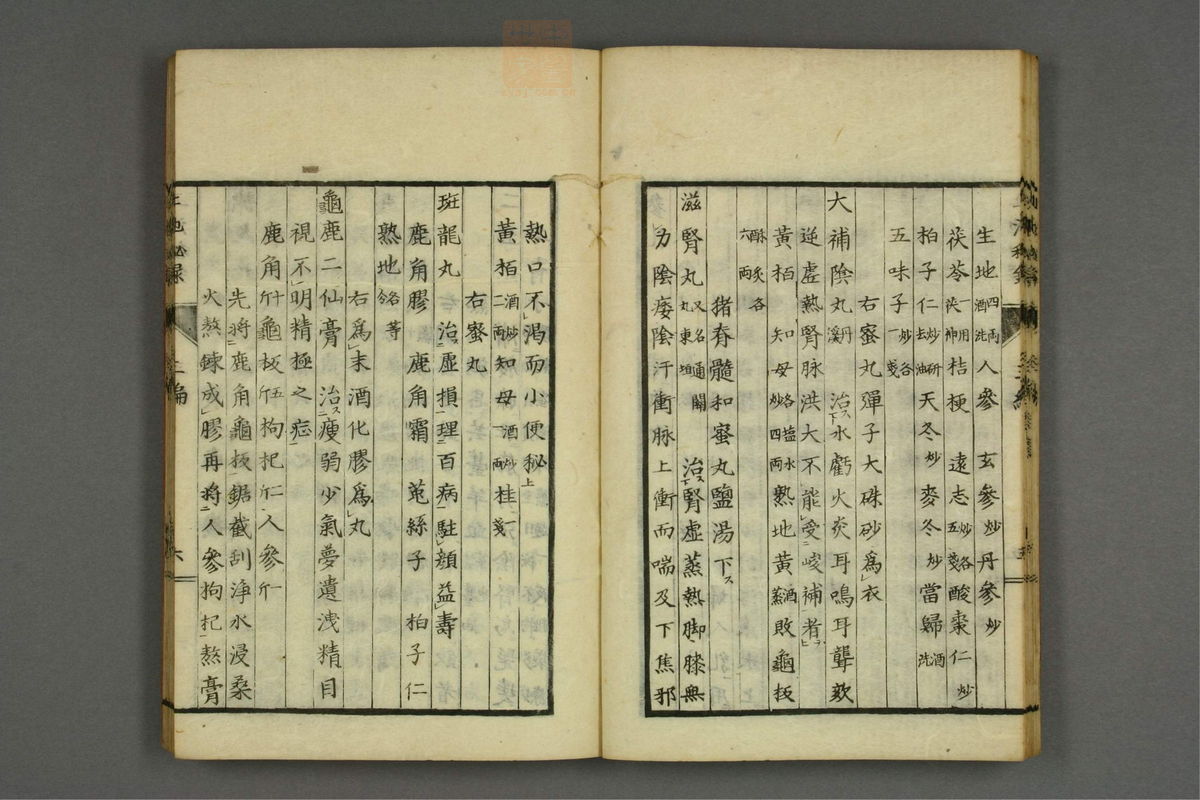 生地四両酒洗人參玄參炒丹參炒
茯苓一用茯神桔梗遠志炒各五戔酸棗仁炒
柏子仁炒研去油天冬炒麥冬炒當歸酒洗
五味子炒各一戔
右蜜丸彈子大硃砂爲衣
大補陰丸丹溪治水虧火炎耳鳴耳聾欬
逆虛熱腎脉洪大不能受峻補者
黄栢知母各塩水炒四両熟地黄酒蒸敗龜板
酥炙各六両
猪脊髓和蜜丸鹽湯下
滋腎丸又名通關丸東垣治腎虛蒸熱脚膝無
力陰痿陰汗衝脉上衝而喘及下焦邪
熱口不渴而小便秘上
黄栢酒炒二両知母酒炒一両桂一戔
右蜜丸
斑龍丸治虛損理百病駐顔益壽
鹿角膠鹿角霜菟絲子柏子仁
熟地各等
右爲末酒化膠爲丸
龜鹿二仙膏治瘦弱少氣夢遺洩精目
視不明精極之症
鹿角龜板拘杞人參
先將鹿角龜板鋸截刮淨水浸桑
火熬鍊成膠再將人參拘杞熬膏